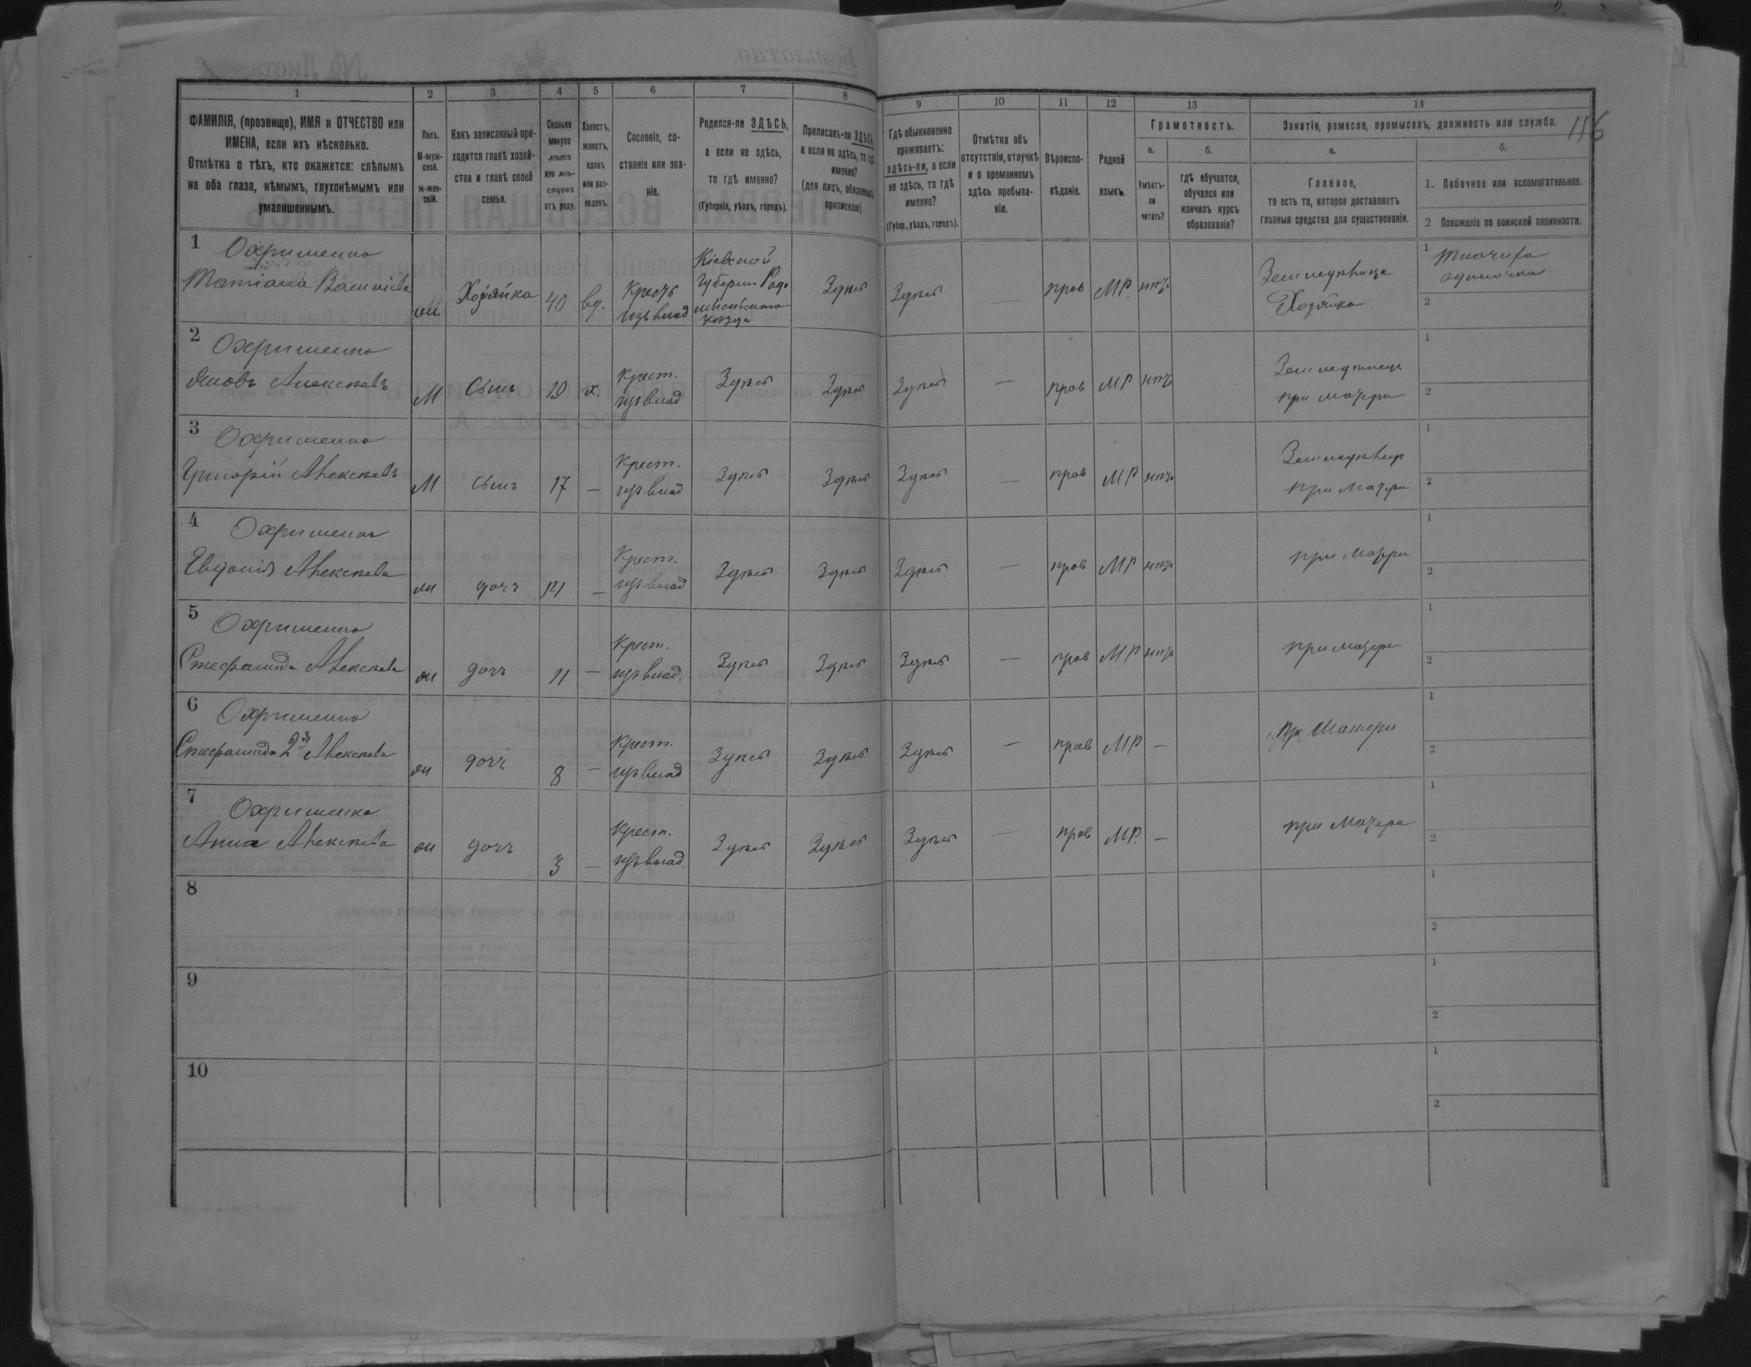 1 2 3 4 5 6 7 8 9 10 11 12 13 14
116
ФАМИЛІЯ, (прозвище), ИМЯ и ОТЧЕСТВО или ИМЕНА, если ихъ нѣсколько.
Отмѣтка о тѣхъ, кто окажется: слѣпымъ на оба глаза, нѣмымъ, глухонѣмымъ или умалишеннымъ.
Полъ.
М-муж-
ской.
ж-жен-
скій.
Какъ записанный при-
ходится главѣ хозяй-
ства и главѣ своей
семьи.
Сколько
минуло
лѣтъ
или мѣ-
сяцевъ
отъ роду.
Холостъ,
женатъ,
вдовъ
или раз-
веденъ.
Сословіе, со-
стояніе или зва-
ніе.
Родился-ли ЗДѢСЬ,
а если не здѣсь,
то гдѣ именно?
(Губернія, уѣздъ, городъ).
Приписанъ-ли ЗДѢСЬ,
а если не здѣсь, то гдѣ
именно?
(для лицъ, обязанныхъ
припискою).
Гдѣ обыкновенно
проживаетъ:
здѣсь-ли, а если
не здѣсь, то гдѣ
именно?
(Губер., уѣздъ, городъ).
Отмѣтка объ
отсутствіи, отлучкѣ
и о временномъ
здѣсь пребыва-
ніи.
Вѣроиспо-
вѣданіе.
Родной
языкъ.
Грамотность.
а.
Умѣетъ-
ли
читать?
б.
Гдѣ обучается,
обучался или
кончилъ курсъ
образованія?
Занятіе, ремесло, промыселъ, должность или служба.
а.
Главное,
то есть то, которое доставляетъ
главныя средства для существованія.
б.
1. Побочное или вспомогательное.
2 Положеніе по воинской повинности.
1 Охрименко
Татіана Василіева
ж Хозяйка 40 вд. Крест. изъ влад
Кіевской
Губерніи Радо
мысльскаго
уѣзда
Здѣсь Здѣсь — прав МР. нѣтъ
Земледѣлица
Хозяйка
1
2
2 Охрименко
Яковъ Алексѣевъ
М Сынъ х. Крест.
изъ влад
Здѣсь Здѣсь Здѣсь — прав МР нѣтъ
при матери
1
2
3 Охрименко
Григорій Алексѣевъ
М сынъ 17 — Крест.
изъ влад
Здѣсь Здѣсь Здѣсь — прав МР нѣтъ
при матери
1
2
4 Охрименко
Алексѣева
ж дочь — Крест.
изъ влад
Здѣсь Здѣсь Здѣсь — прав МР нѣтъ
при матери
1
2
5 Охрименко
Стефанида Алексѣева
ж дочь 11 — Крест.
изъ влад.
Здѣсь Здѣсь Здѣсь — прав МР нѣтъ
при матери
1
2
6 Охрименко
Стефанида 2я Алексѣева
ж дочь 8 — Крест.
изъ влад
Здѣсь Здѣсь Здѣсь — прав МР —
при Матери
1
2
7 Охрименко
Анна Алексѣева
ж дочь 3 — Крест.
изъ влад.
Здѣсь Здѣсь Здѣсь — прав МР. —
при Матери
1
2
8
1
2
9
1
2
10
1
2